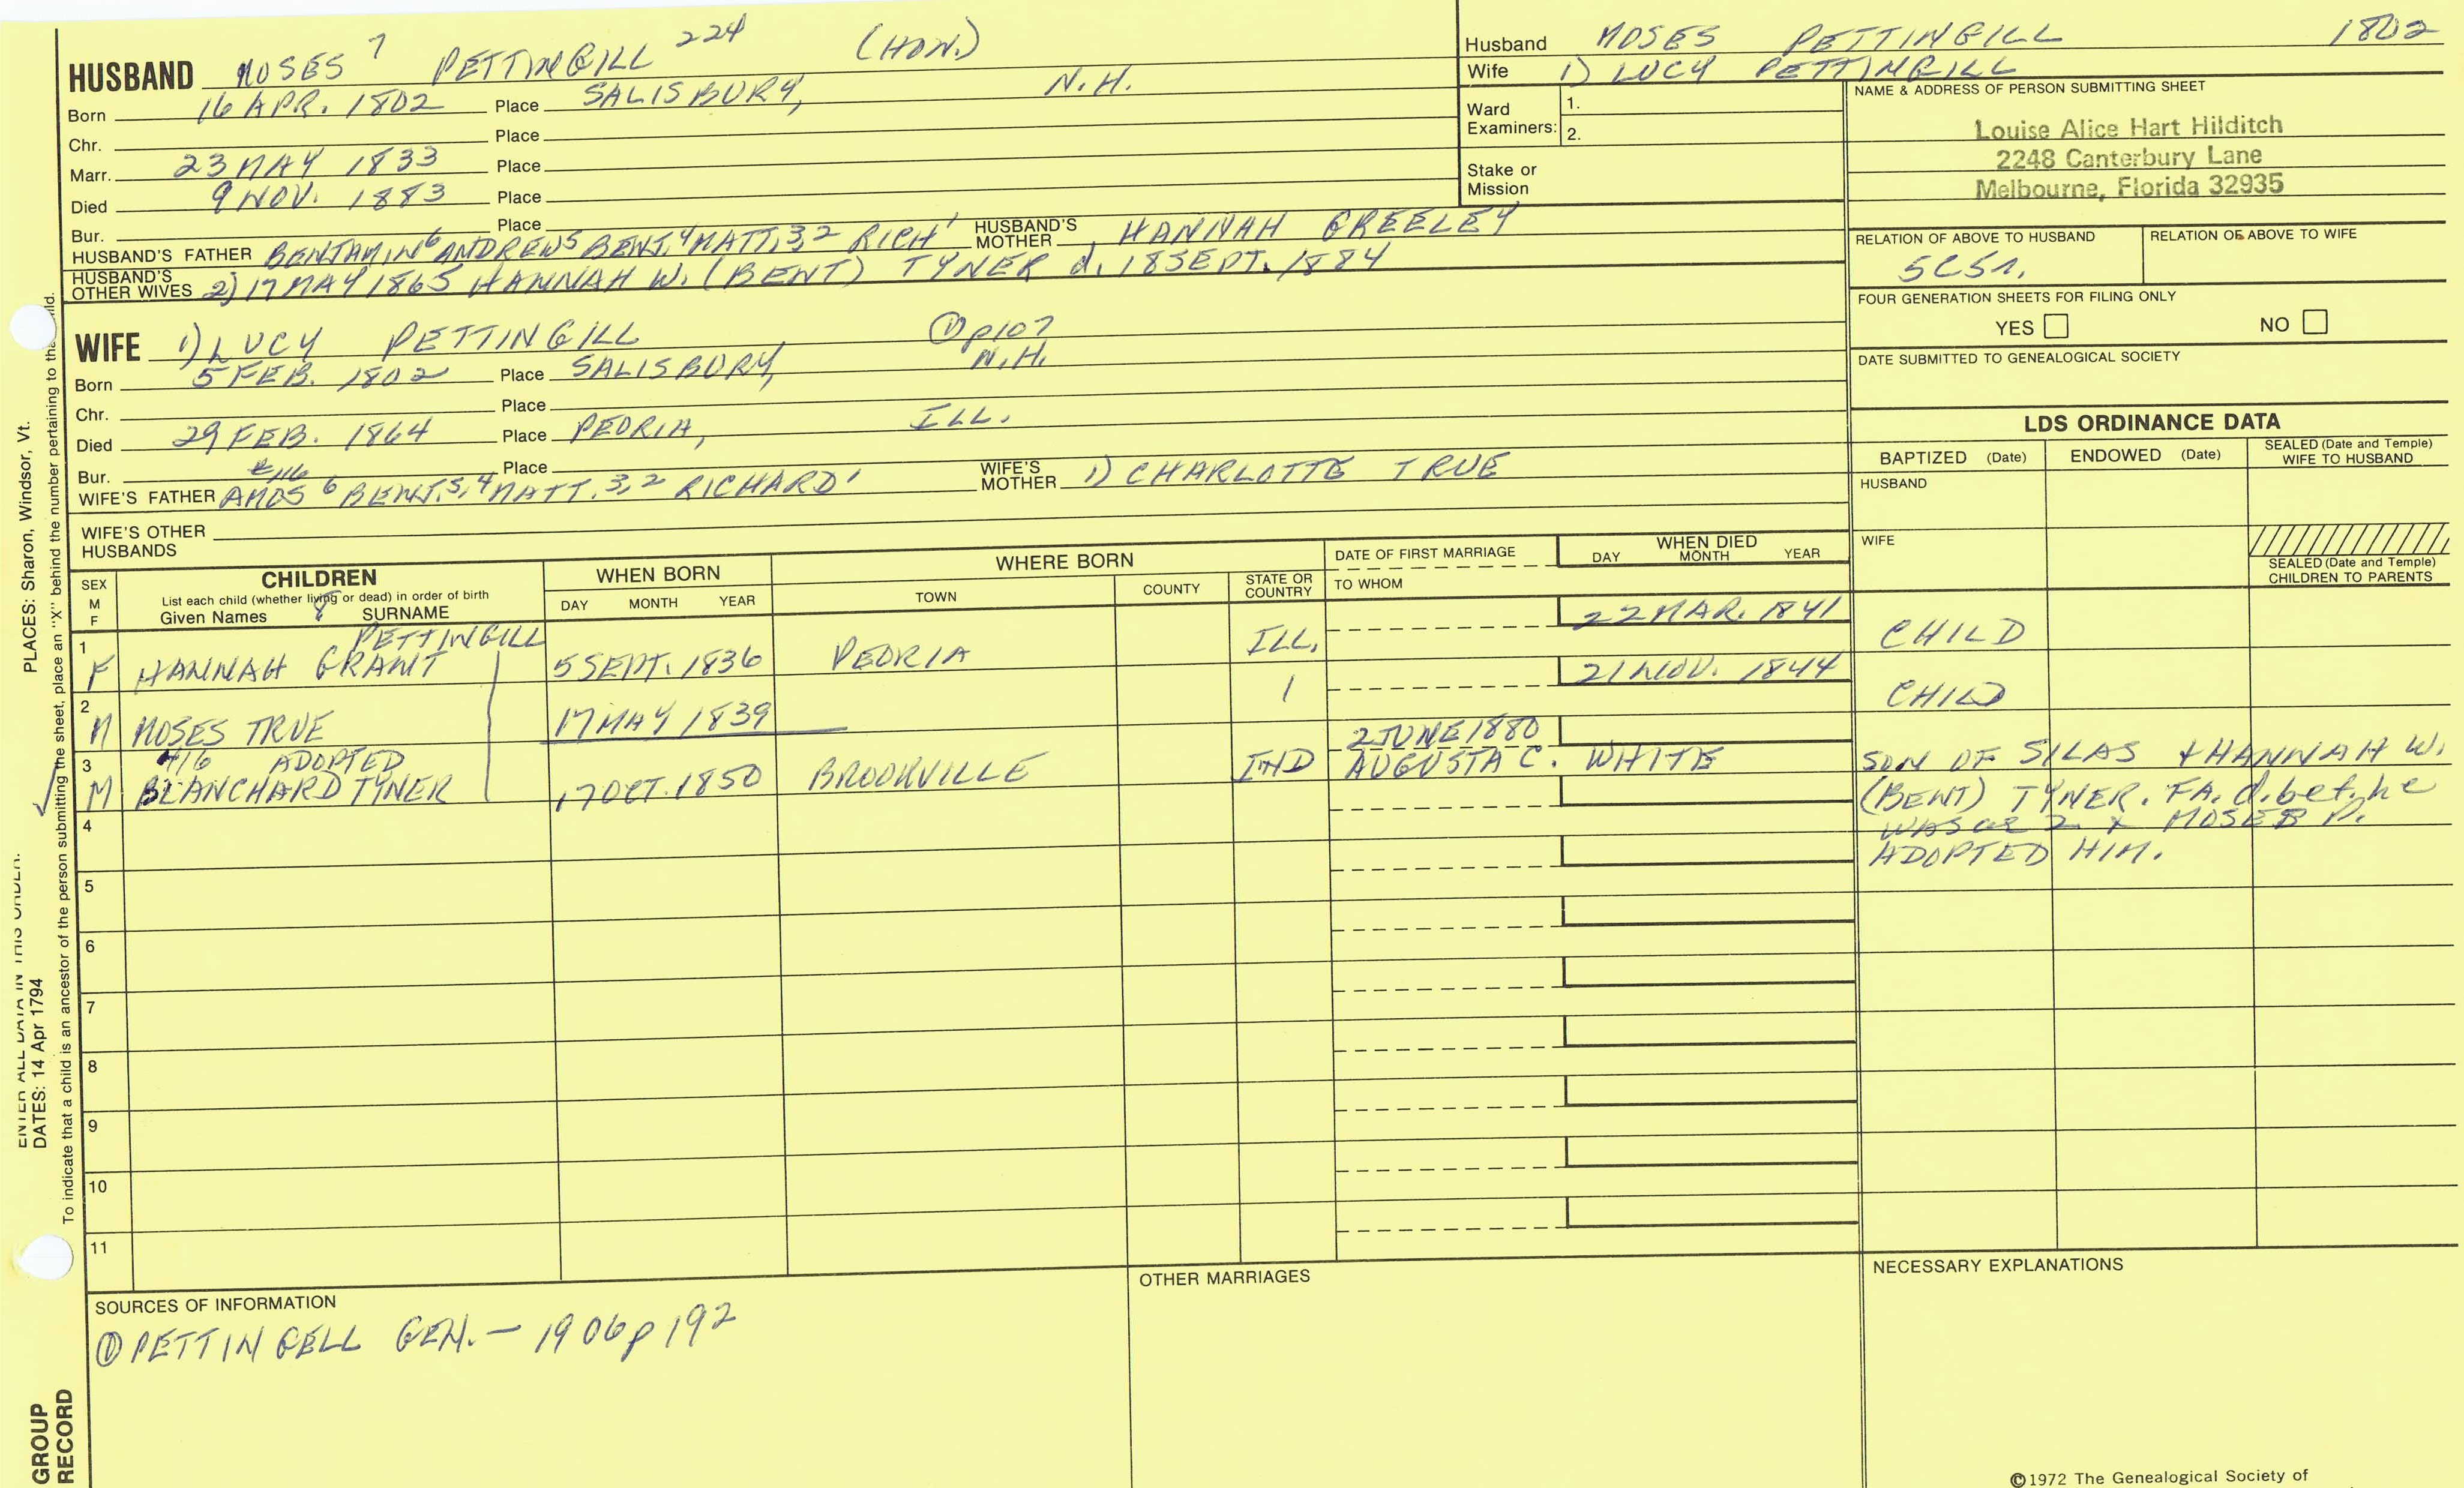 HUSBAND MOSES 7 PETTINGILL 224 (HON.)
Born 16 APR. 1802 Place SALISBURY, N.H.
Chr. Place
Marr. 23 MAY 1833 Place
Died 9 NOV. 1883 Place
Bur. Place
HUSBAND'S FATHER BENJAMIN 6 ANDREW 5 BENJ. 4 MATT. 3, 2 RICH 1 HUSBAND'S MOTHER HANNAH GREELEY
HUSBAND'S OTHER WIVES 2) 17 MAY 1865 HANNAH W. (BENT) TYNER d. 18 SEPT. 1884
Husband MOSES PETTINGILL 1802
Wife 1) LUCY PETTINGILL
Ward Examiners: 1.
2.
Stake or Mission
NAME & ADDRESS OF PERSON SUBMITTING SHEET
Louise Alice Hart Hilditch
2248 Canterbury Lane
Melbourne, Florida 32935
RELATION OF ABOVE TO HUSBAND RELATION OF ABOVE TO WIFE
5C5r.
FOUR GENERATION SHEETS FOR FILING ONLY
YES NO
DATE SUBMITTED TO GENEALOGICAL SOCIETY
WIFE 1) LUCY PETTINGILL ① p107
Born 5 FEB. 1802 Place SALISBURY, N.H.
Chr. Place
Died 29 FEB. 1864 Place PEORIA, ILL.
Bur. Place
#116
WIFE'S FATHER AMOS 6 BENJ. 5, 4 MATT. 3, 2 RICHARD 1 WIFE'S MOTHER 1) CHARLOTTE TRUE
WIFE'S OTHER HUSBANDS
LDS ORDINANCE DATA
BAPTIZED (Date) ENDOWED (Date) SEALED (Date and Temple) WIFE TO HUSBAND
HUSBAND
WIFE
SEALED (Date and Temple) CHILDREN TO PARENTS
SEX M F CHILDREN WHEN BORN WHERE BORN DATE OF FIRST MARRIAGE WHEN DIED
List each child (whether living or dead) in order of birth
Given Names 8 SURNAME DAY MONTH YEAR TOWN COUNTY STATE OR COUNTRY TO WHOM DAY MONTH YEAR
PETTINGILL
1 F HANNAH GRANT 5 SEPT. 1836 PEORIA ILL. 22 MAR. 1841 CHILD
2 M MOSES TRUE 17 MAY 1839 21 NOV. 1844 CHILD
416 ADOPTED 2 JUNE 1880
3 M BLANCHARD TYNER 17 OCT. 1850 BROOKVILLE IND AUGUSTA C. WHITE
SON OF SILAS + HANNAH W.
(BENT) TYNER. FA. d. bef. he
WAS ae 2 + MOSES P.
ADOPTED HIM.
4
5
6
7
8
9
10
11
SOURCES OF INFORMATION
① PETTINGELL GEN. — 1906 p 192
OTHER MARRIAGES
NECESSARY EXPLANATIONS
©1972 The Genealogical Society of
PLACES: Sharon, Windsor, Vt.
ENTER ALL DATA IN THIS ORDER:
DATES: 14 Apr 1794
To indicate that a child is an ancestor of the person submitting the sheet, place an "X" behind the number pertaining to that child.
GROUP
RECORD